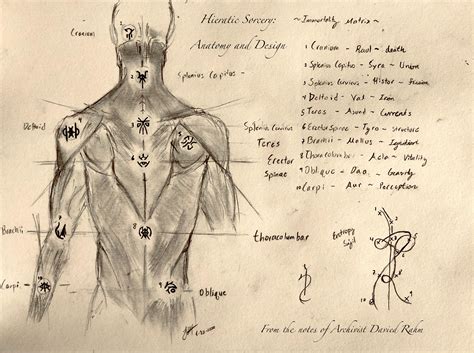 Hieratic Sorcery:
Anatomy and Design
~ Immortality Matrix ~
Cranium
Splenius Capitus
Deltoid
Splenius Cervicus
Teres
Erector
Spinae
Brachii
Thoracolumbar
Carpi
Oblique
1 Cranium - Raul - death
2 Splenius Capitus - Syra - Union
3 Splenius Cervicus - Histor - Fusion
4 Deltoid - Val - Iron
5 Teres - Asund - Currents
6 Erector Spinae - Tyra - Structure
7 Brachii - Mollus - Ignition
8 Thoracolumbar - Acla - Vitality
9 Oblique - Dao - Gravity
10 Carpi - Aur - Perception
Entropy
Sigil
From the notes of Archivist Davied Rahm